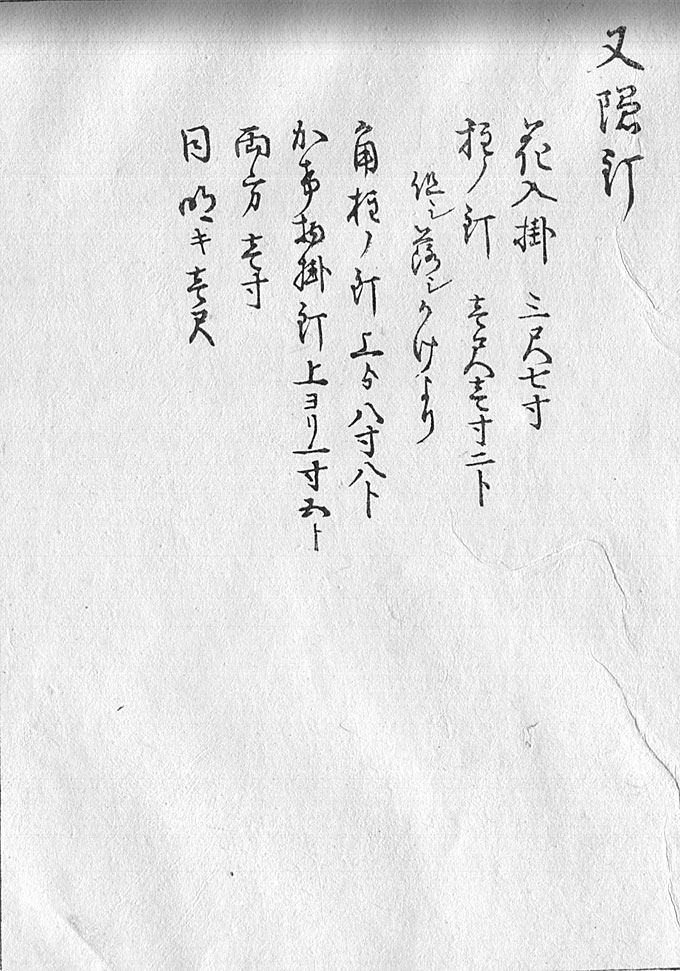 又隠釘
花入掛 三尺七寸
柱ノ釘 壱尺壱寸二ト
但シ落シかけより
角柱ノ釘 上ゟ八寸八ト
か事物掛釘 上ヨリ一寸五ト
両方 壱寸
目明キ壱尺